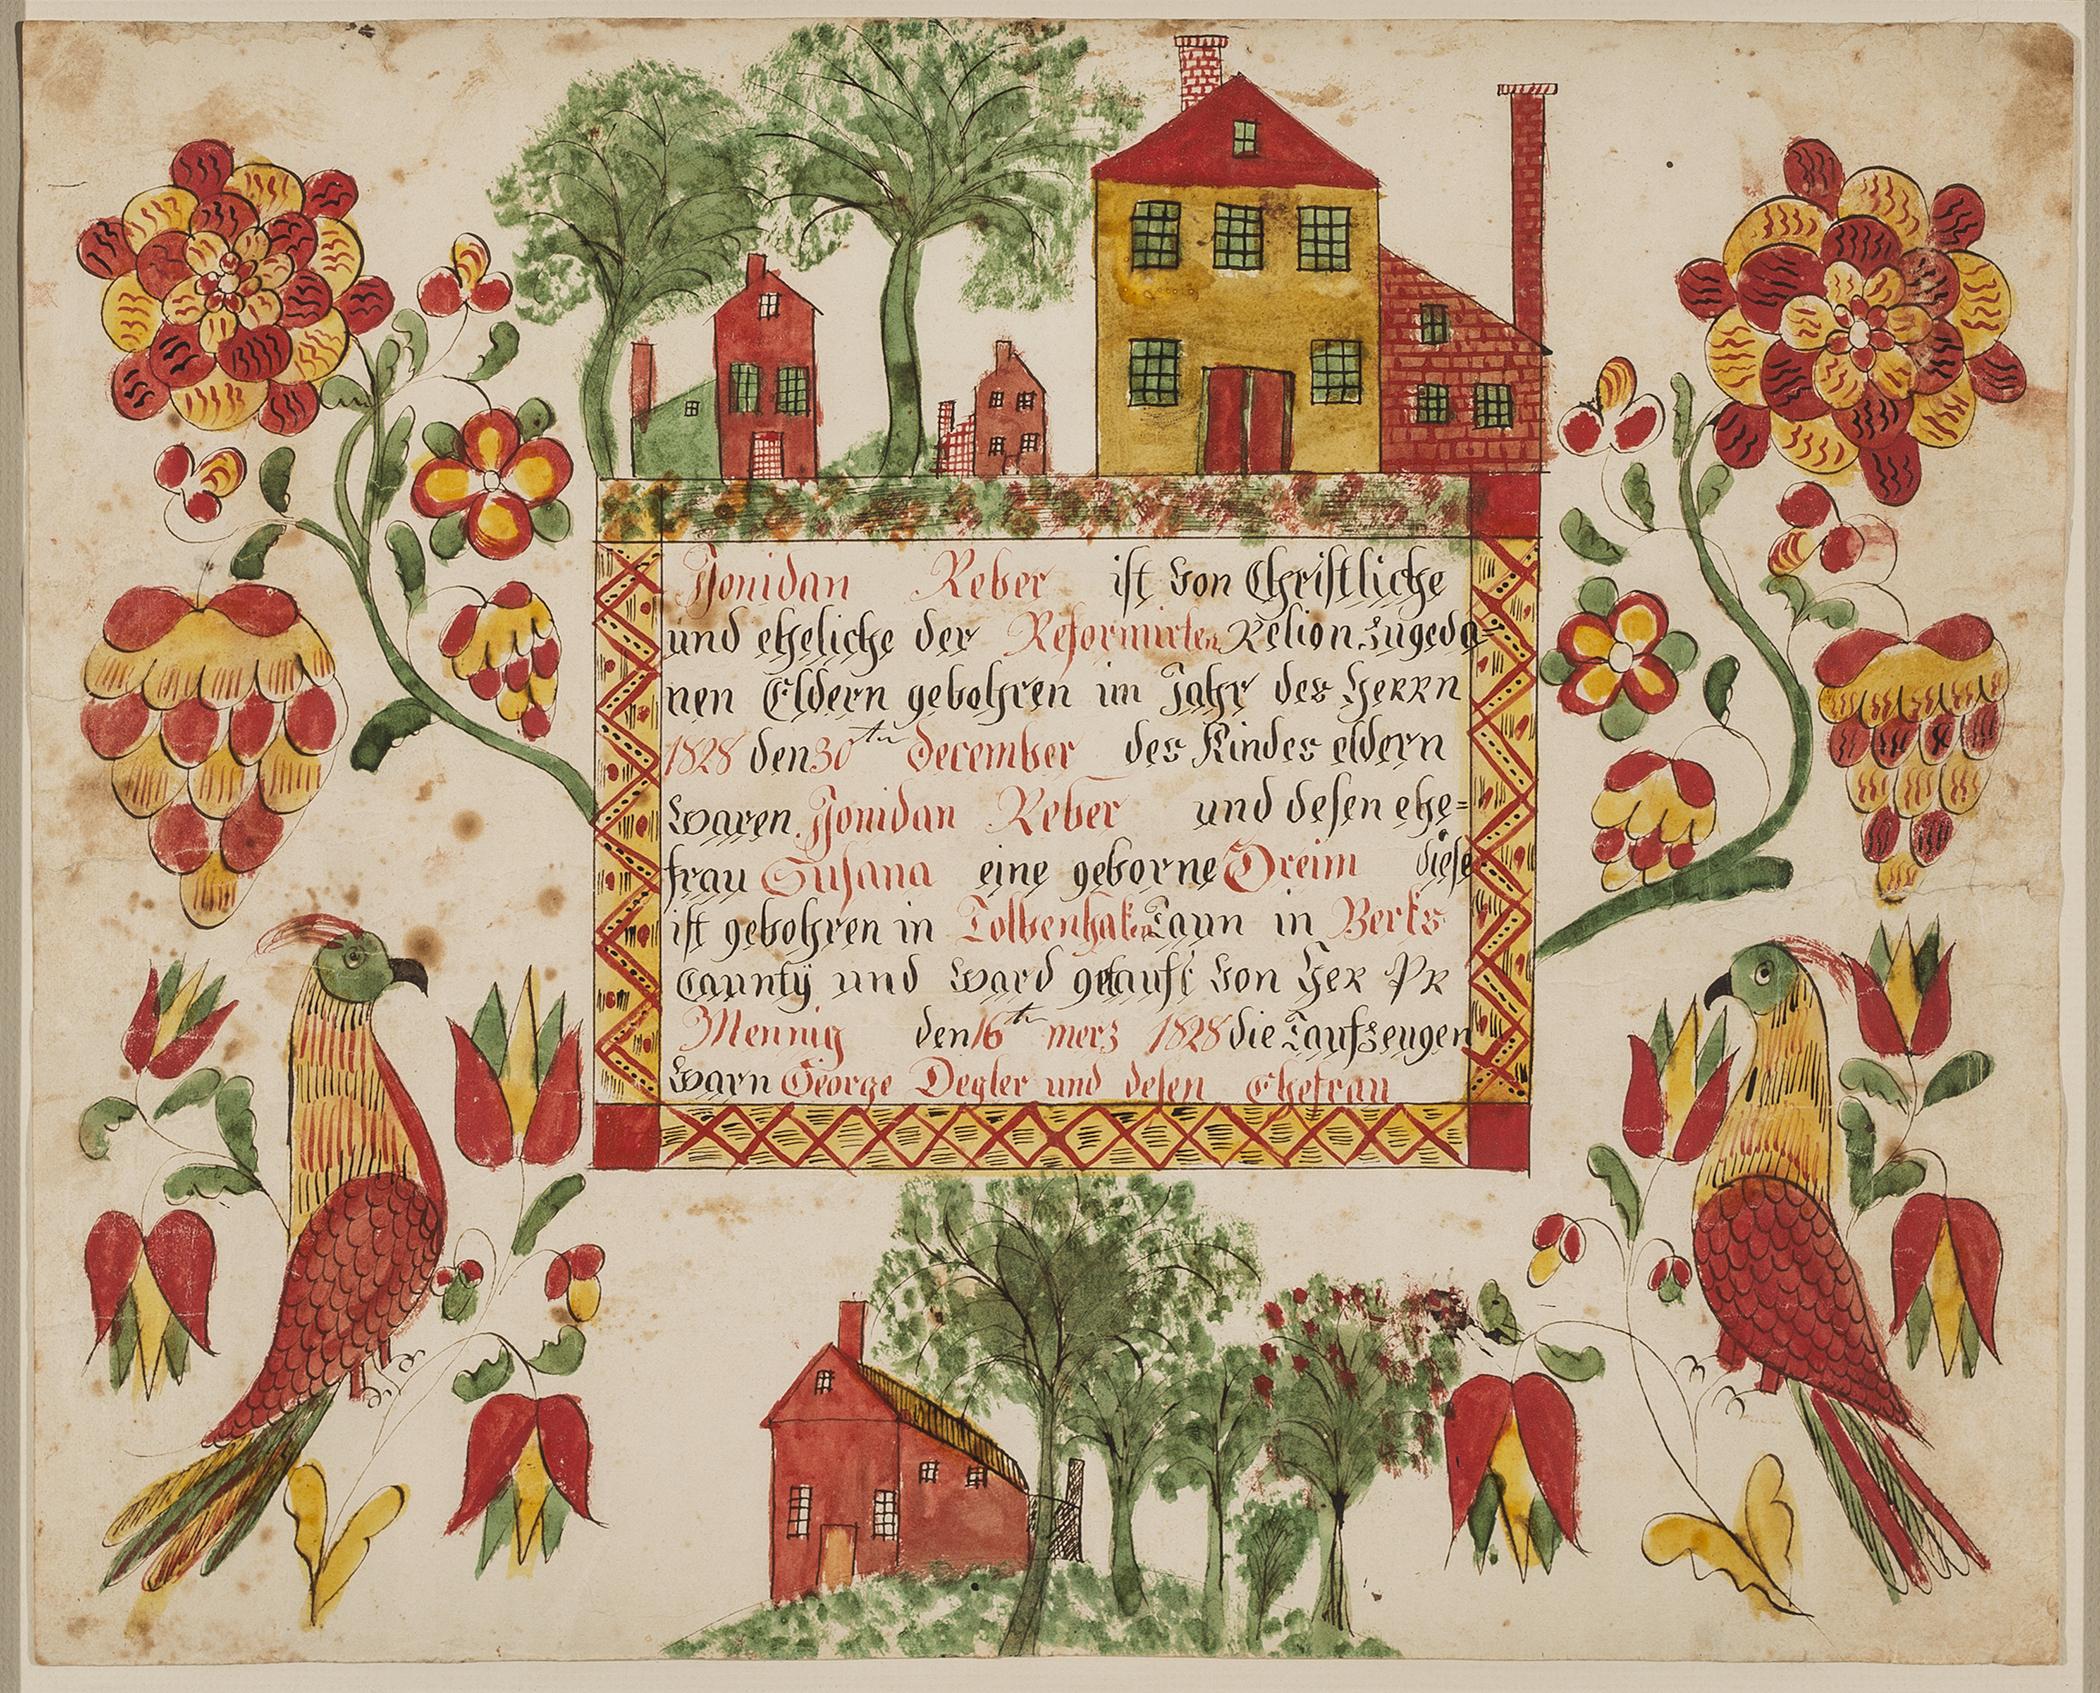 Jonidan Reber ist von Christliche
und eheliche der Reformirten Relion zugeda=
nen Eldern gebohren im Jahr des Herrn
1828 den 30ten December des Kindes eldern
waren Jonidan Reber und desen ehe=
frau Susana eine geborne Dreim diese
ist gebohren in Taun in Berks
Caunty und ward getauft von Her Pr
Mennig den 16ten merz 1828 die Taufzeugen
warn George Degler und desen Ehefrau